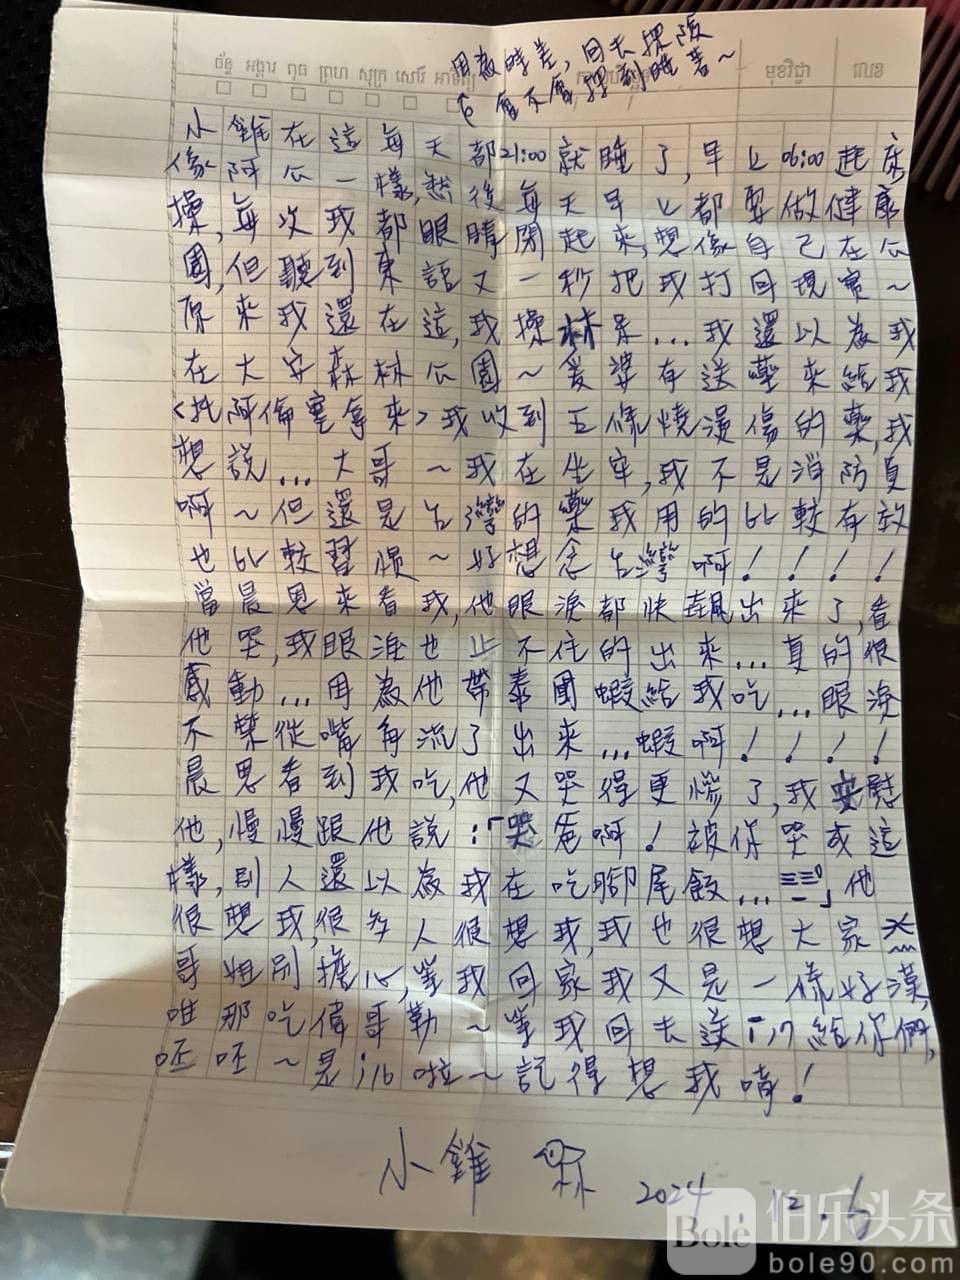 ច័ន្ទ អង្គារ ពុធ ព្រហ សុក្រ សៅរ៍ អាទិត្យ
មុខវិជ្ជា
លេខ
因為時差，回去探險
會不會
睡著～
小雞在這每天都21:00就睡了，早上06:00起床
像阿公一樣，然後每天早上都要做健康
操，每次我都眼睛閉起來，想像自己在公
園，但聽到柬語又一秒把我打回現實～
原來我還在這，我操林呆...我還以為我
在大安森林公園～爰婆有送藥來給我
<托阿倫寒拿來>我收到五條燒燙傷的藥，我
想說...大哥～我在坐牢，我不是消防員
啊～但還是台灣的藥我用的比較有效
也比較習慣～好想念台灣啊！！！！
當晨恩來看我，他眼淚都快飆出來了，看
他哭，我眼淚也止不住的出來...真的很
感動...因為他帶泰國蝦給我吃...眼淚
不禁從嘴角流了出來...蝦啊！！！！
晨恩看到我吃，他又哭得更慘了，我安慰
他，慢慢跟他說：「哭爸啊！被你哭成這
樣，別人還以為我在吃腳尾飯...」他
很想我，很多人很想我，我也很想大家
哥姐別擔心，等我回家我又是一條好漢，
唯那吃偉哥勒～等我回去送i17給你們，
呸呸～是i16啦～記得想我唷！
小雞 2024.12.6
Bole 伯乐头条
bole90.com